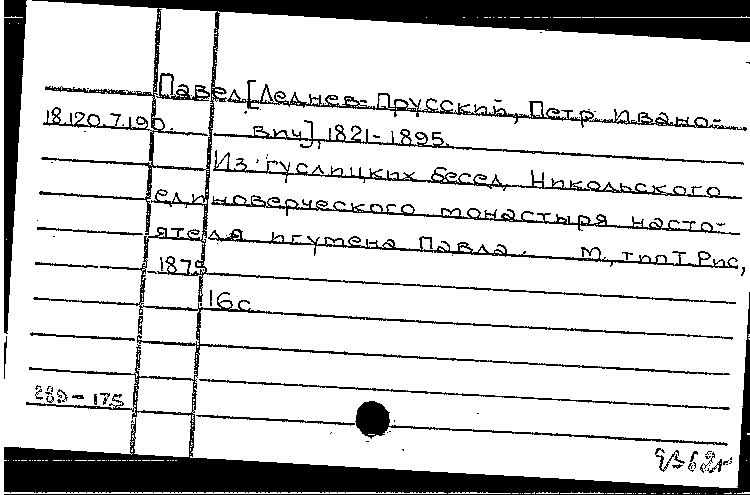 Павел [Леднев-Прусский, Петр Ивано-
18.120.7.190. вич], 1821-1895.
Из гуслицких бесед Никольского
единоверческого монастыря насто-
ятеля игумена Павла. М., тип Т. Рис,
1875
16с.
289-175